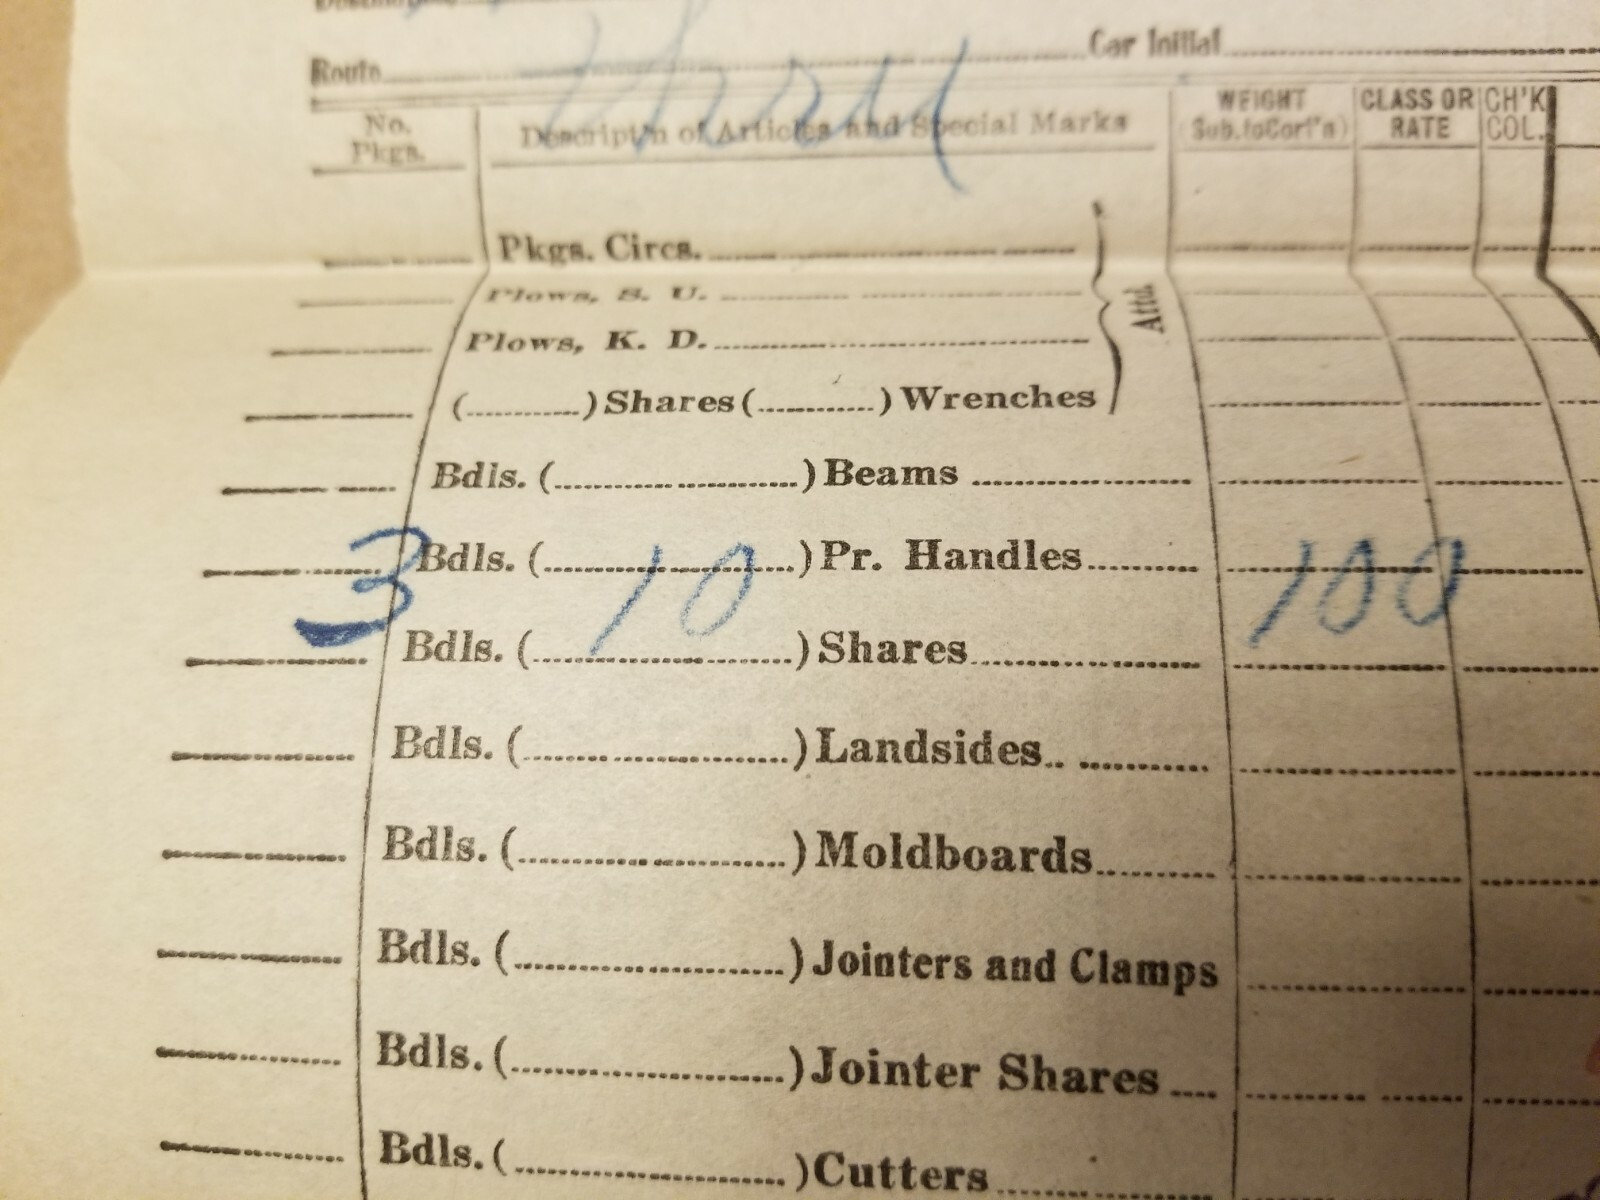 Route Thru Car Initial
No. Pkgs. Descript'n of Articles and Special Marks WEIGHT (Sub. to Cor't'n) CLASS OR RATE CH'K COL.
Pkgs. Circs.
Plows, S. U.
Plows, K. D.
( ) Shares ( ) Wrenches
Attd.
Bdls. ( ) Beams
3 Bdls. ( 10 ) Pr. Handles 100
Bdls. ( ) Shares
Bdls. ( ) Landsides
Bdls. ( ) Moldboards
Bdls. ( ) Jointers and Clamps
Bdls. ( ) Jointer Shares
Bdls. ( ) Cutters